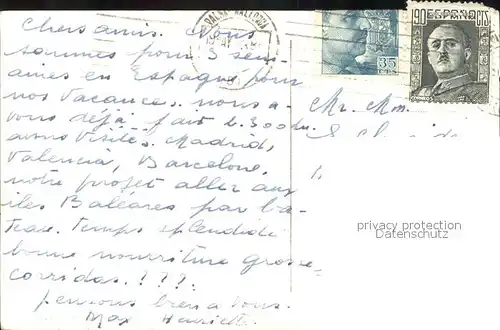 Chers amis. Nous
sommes pour 3 sem-
aines en Espagne pour
nos vacances. nous a-
vons déjà fait 2.300 km.
avons visité. Madrid,
Valencia, Barcelone,
notre projet aller aux
iles Baléares par ba-
teau. Temps splendide
bonne nourriture grosse
corridas. ???.
pensons bien a vous.
Max Henriette.
PALMA MALLORCA
35
CTS
90 ESPAÑA CTS
Mr. Mm.
privacy protection
Datenschutz